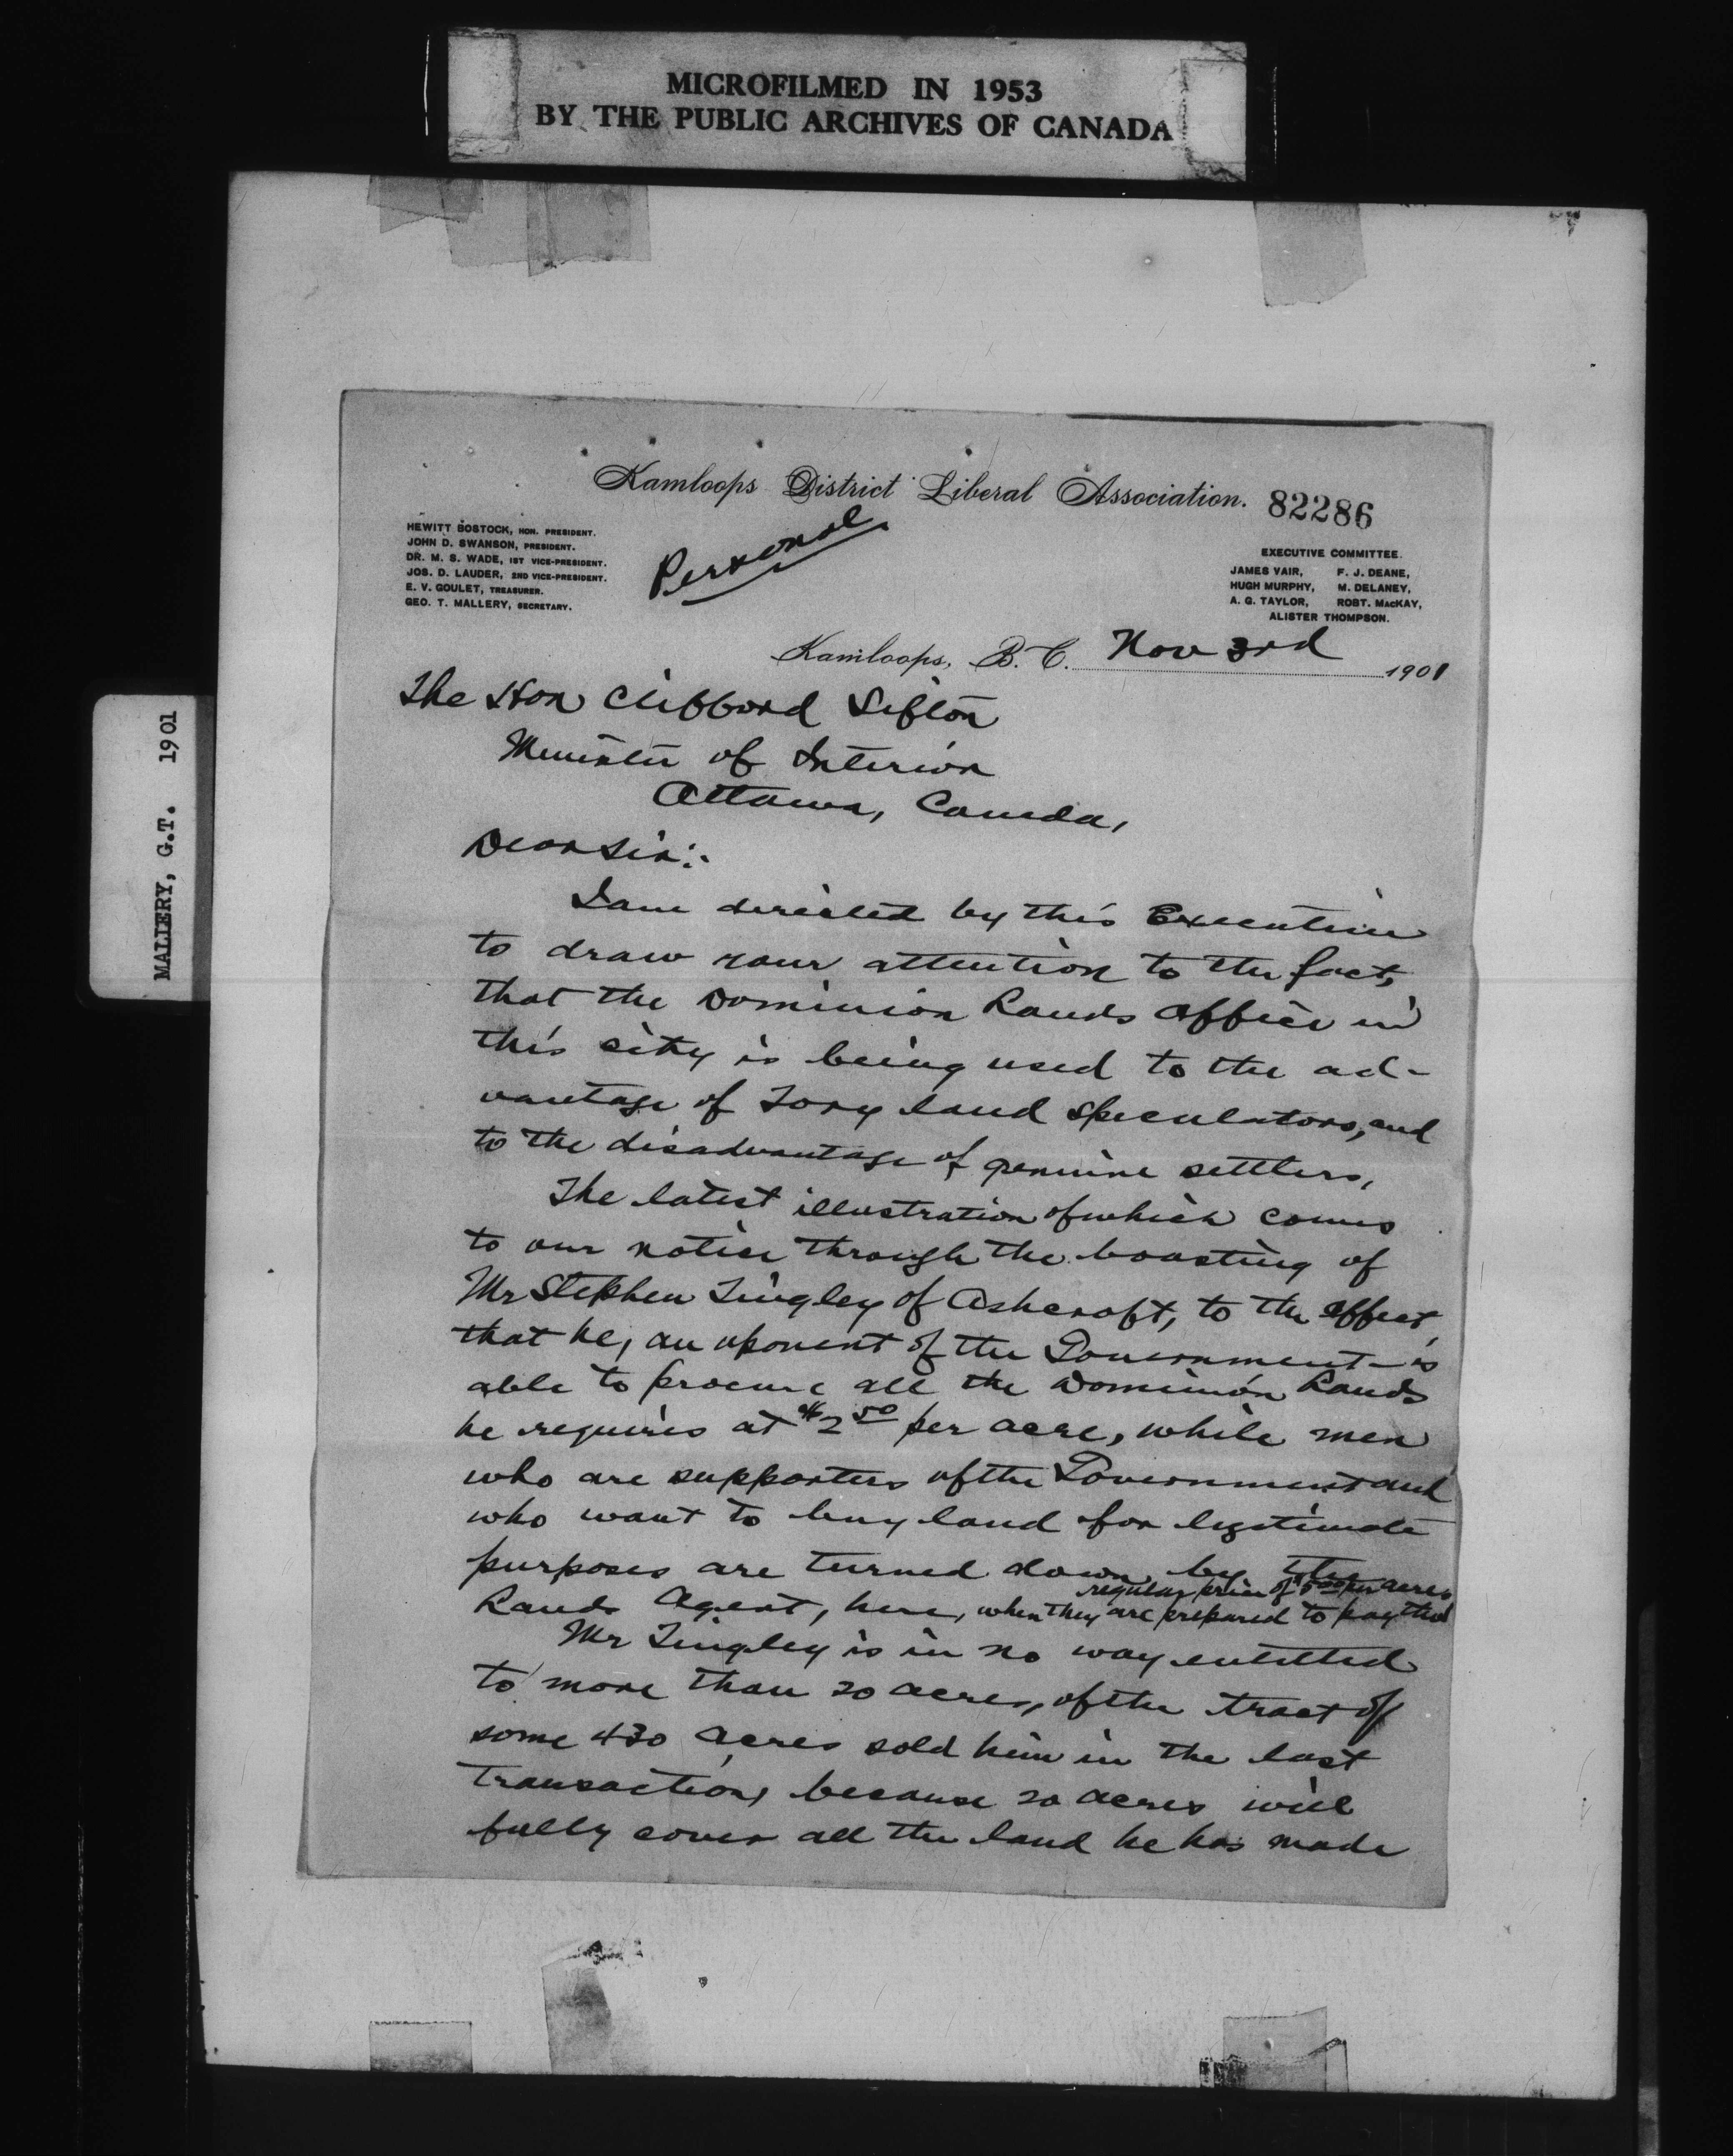 MICROFILMED IN 1953
BY THE PUBLIC ARCHIVES OF CANADA
MALLERY, G.T. 1901
Kamloops District Liberal Association. 82286
HEWITT BOSTOCK, HON. PRESIDENT.
JOHN D. SWANSON, PRESIDENT.
DR. M. S. WADE, 1ST VICE-PRESIDENT.
JOS. D. LAUDER, 2ND VICE-PRESIDENT.
E. V. GOULET, TREASURER.
GEO. T. MALLERY, SECRETARY.
Personal
EXECUTIVE COMMITTEE.
JAMES VAIR, F. J. DEANE,
HUGH MURPHY, M. DELANEY,
A. G. TAYLOR, ROBT. MACKAY,
ALISTER THOMPSON.
Kamloops, B. C. Nov 3rd 1901
The Hon Clifford Sifton
Minister of Interior
Ottawa, Canada,
Dear Sir:-
I am directed by this Executive
to draw your attention to the fact,
that the Dominion Lands Office in
this city is being used to the ad-
vantage of Tory land speculators, and
to the disadvantage of genuine settlers,
The latest illustration of which comes
to our notice through the boasting of
Mr Stephen Tingley of Ashcroft, to the effect,
that he, an oponent of the Government - is
able to procure all the Dominion Lands
he requires at $2.50 per acre, while men
who are supporters of the Government and
who want to buy land for legitimate
purposes are turned down by the
Lands Agent, here, when they are prepared to pay the
regular price of $5.00 per acre.
Mr Tingley is in no way entitled
to more than 20 acres, of the tract of
some 430 acres sold him in the last
transaction, because 20 acres will
fully cover all the land he has made